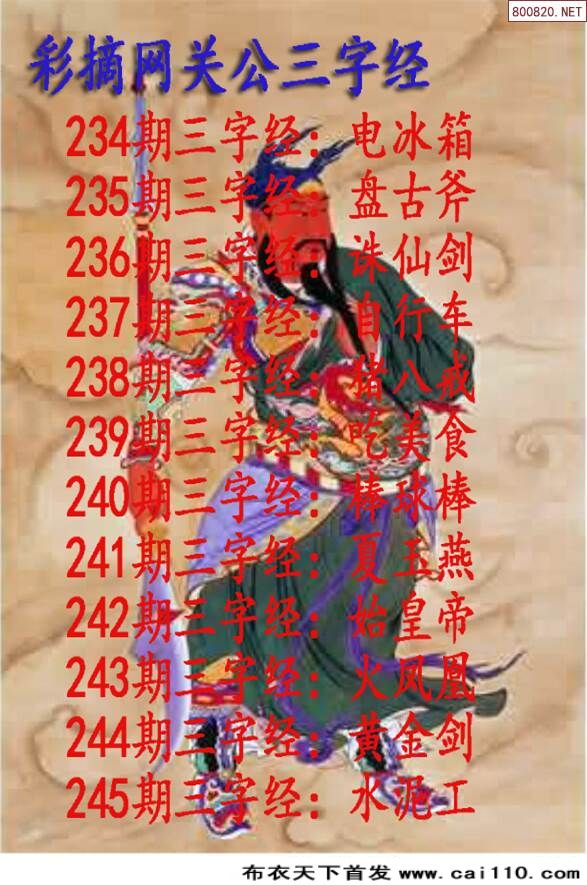 800820.NET
彩摘网关公三字经
234期三字经：电冰箱
235期三字经：盘古斧
236期三字经：诛仙剑
237期三字经：自行车
238期三字经：猪八戒
239期三字经：吃美食
240期三字经：棒球棒
241期三字经：夏玉燕
242期三字经：始皇帝
243期三字经：火凤凰
244期三字经：黄金剑
245期三字经：水泥工
布衣天下首发 www.cai110.com